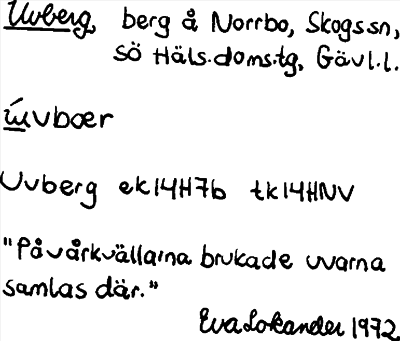 Uvberg, berg å Norrbo, Skogssn,
sö Häls.doms.tg, Gävl.l.
ẃvbær
Uvberg ek14H7b tk14HNV
"På vårkvällarna brukade uvarna
samlas där."
Eva Lokander 1972